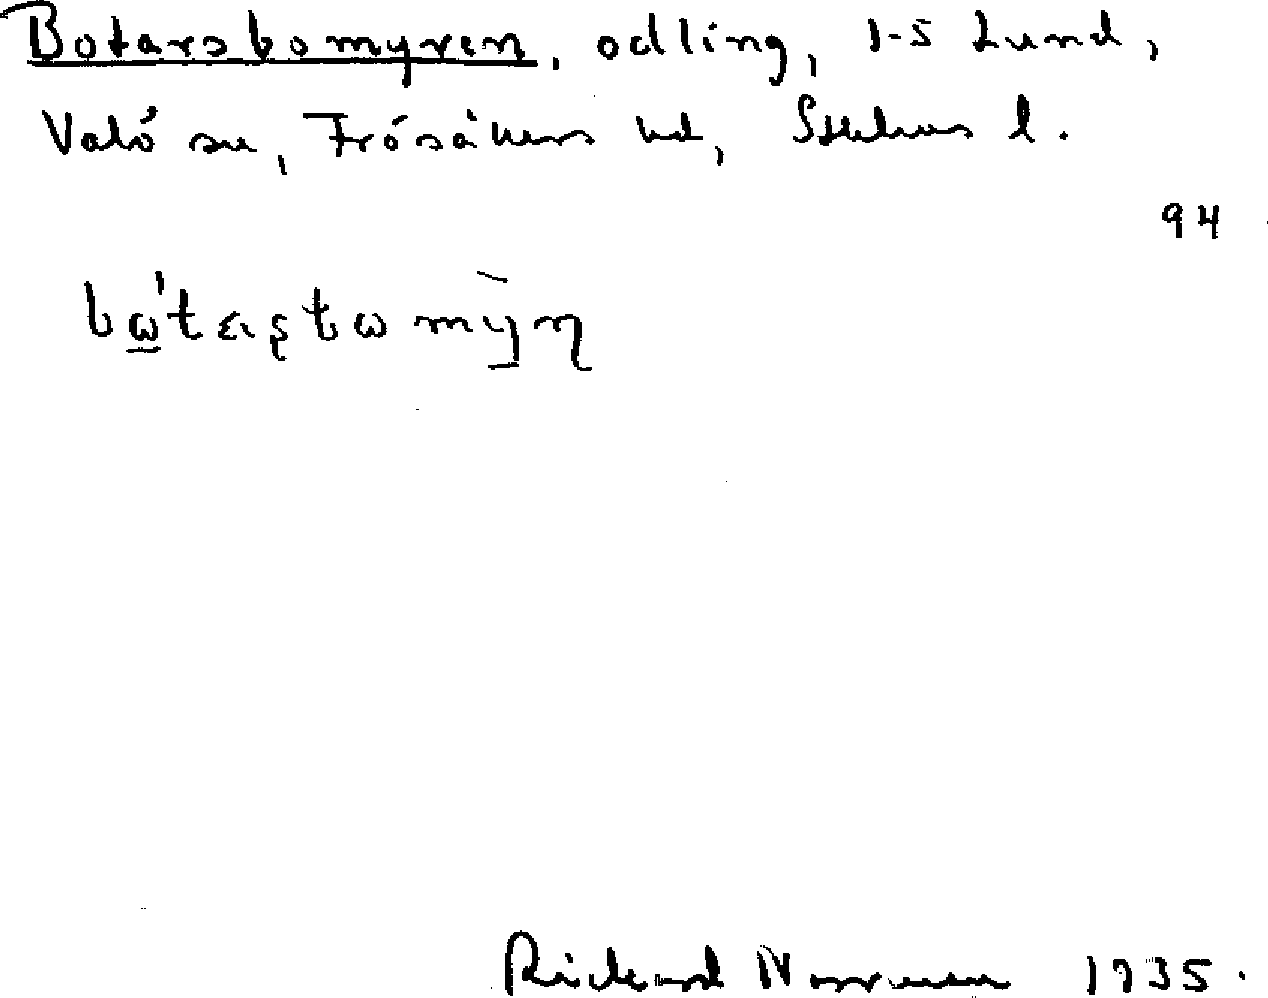 Botarsbomyren, odling, 1-5 Lund,
Valö sn, Frösåkers hd, Sthlms l.
94
Rickard Norrman 1935.